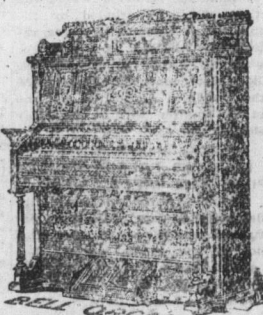 BELL ORGAN